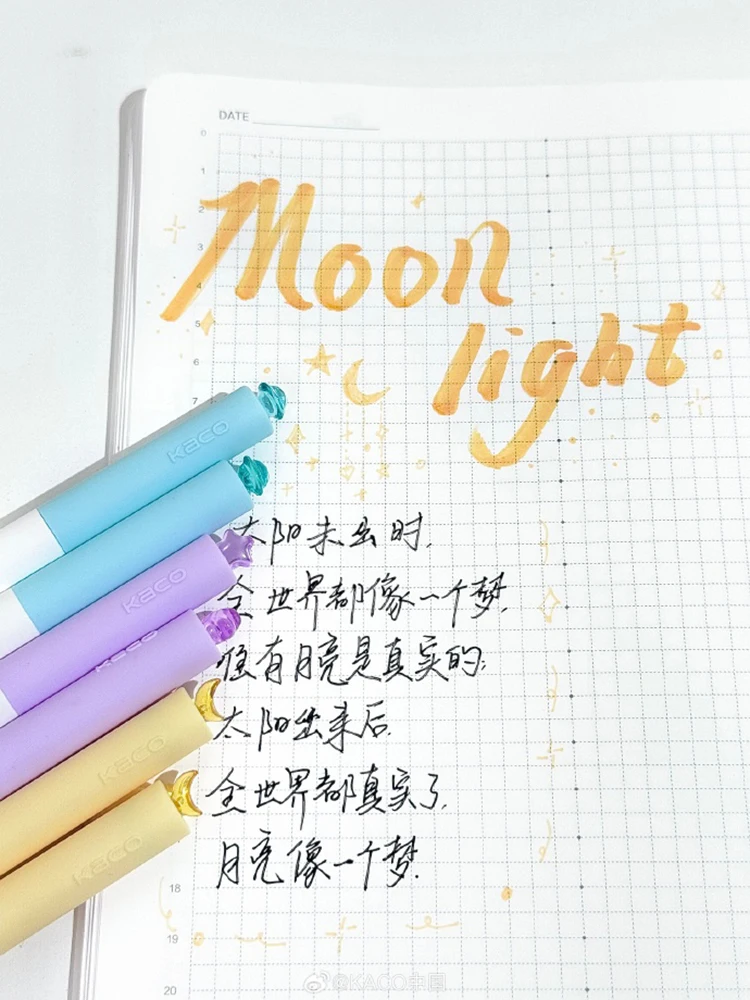 DATE
0
1
2
3
4
5
6
7
Moon
light
KACO
KACO
KACO
KACO
KACO
太阳未出时,
全世界都像一个梦,
唯有月亮是真实的;
太阳出来后
全世界都真实了,
月亮像一个梦.
18
19
20
@KACO文具